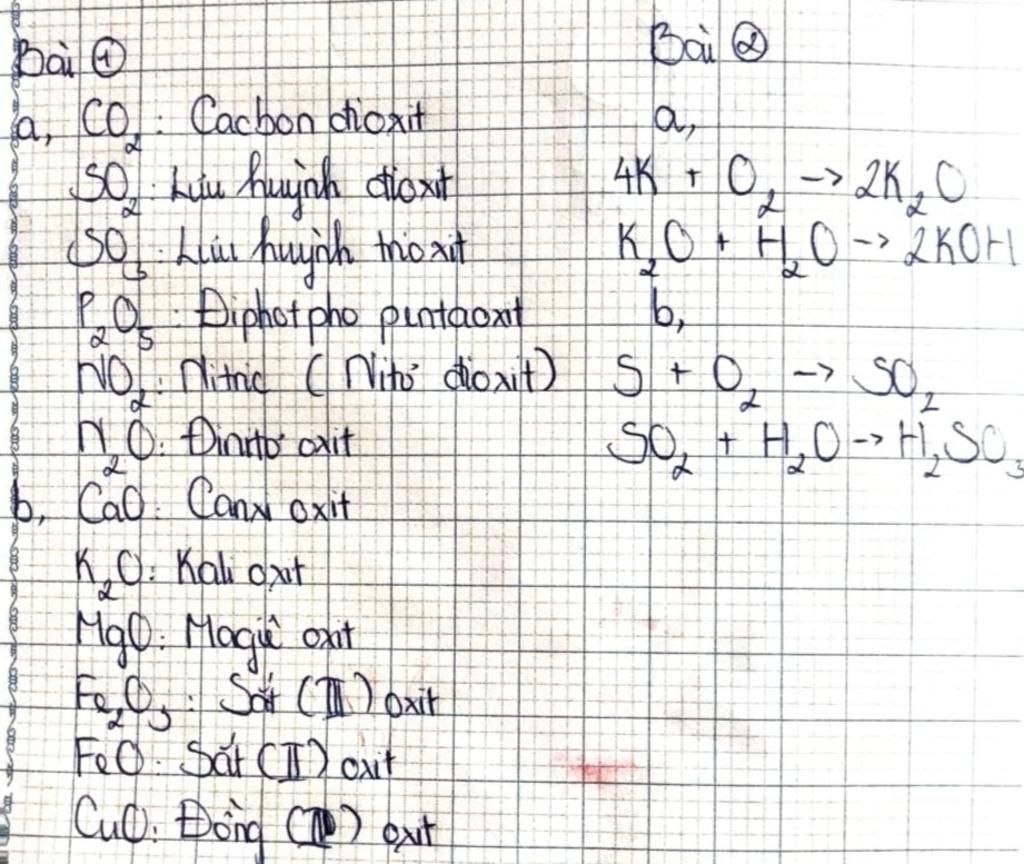 Bài ①
a, CO₂ : Cacbon đioxit
SO₂ : Lưu huỳnh đioxit
SO₃ : Lưu huỳnh trioxit
P₂O₅ : Điphotpho pentaoxit
NO₂ : Nitric ( Nitơ đioxit)
N₂O : Đinitơ oxit
b, CaO : Canxi oxit
K₂O : Kali oxit
MgO : Magiê oxit
Fe₂O₃ : Sắt (III) oxit
FeO : Sắt (II) oxit
CuO : Đồng (II) oxit
Bài ②
a,
4K + O₂ -> 2K₂O
K₂O + H₂O -> 2KOH
b,
S + O₂ -> SO₂
SO₂ + H₂O -> H₂SO₃